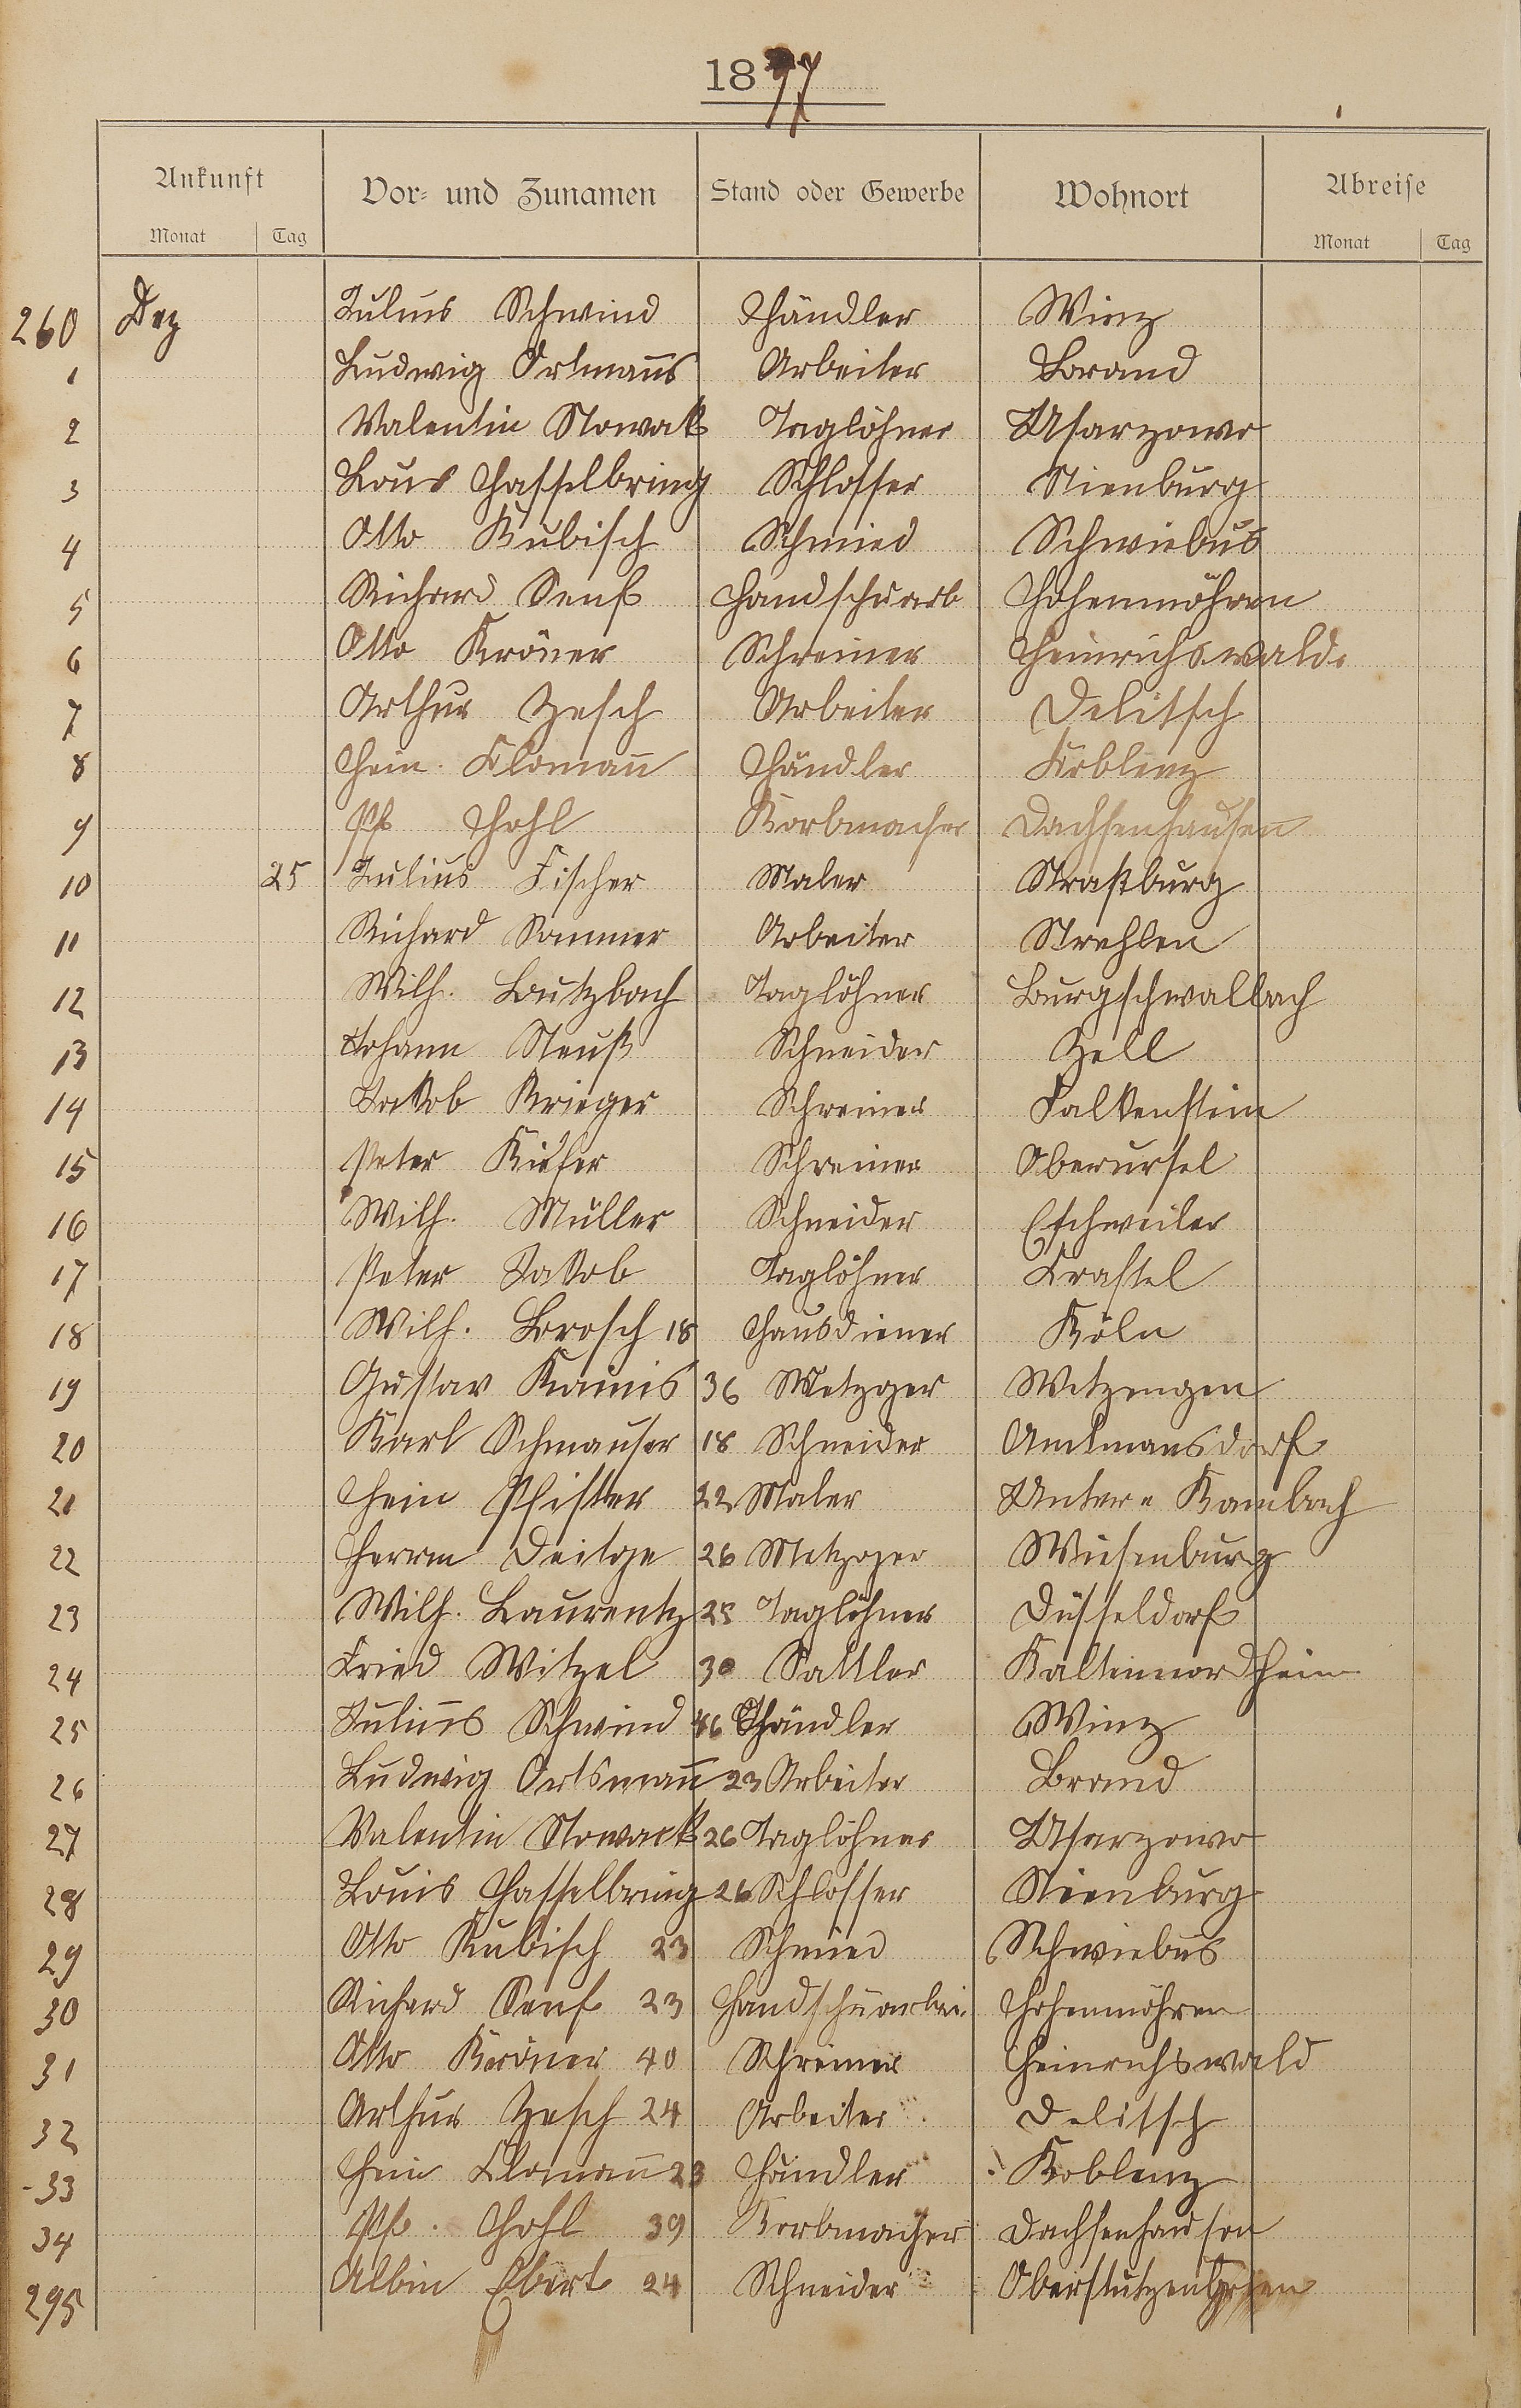 1897
Ankunft Vor- und Zunamen Stand oder Gewerbe Wohnort Abreise
Monat Tag Monat Tag
260 Dez Julius Schwind Händler Winz
1 Ludwig Ortmanns Arbeiter Brand
2 Valentin Nowak Taglöhner Usarzewo
3 Louis Hasselbring Schlosser Nienburg
4 Otto Kubisch Schmied Schwiebus
5 Richard Senf Handschuarb Hohenmöhren
6 Otto Kröner Schreiner Heinrichswalde
7 Arthur Zesch Arbeiter Delitsch
8 Hein. Klomann Händler Koblenz
9 Ph Hohl Korbmacher Dachsenhausen
10 25 Julius Fischer Maler Straßburg
11 Richard Sommer Arbeiter Strehlen
12 Wilh. Lutzbach Taglöhner Burgschwalbach
13 Johann Neuß Schneider Zell
14 Jakob Krieger Schreiner Falkenstein
15 Peter Kiefer Schreiner Oberursel
16 Wilh. Müller Schneider Eschweiler
17 Peter Jakob Taglöhner Krastel
18 Wilh. Brosch 18 Hausdiener Köln
19 Gustav 36 Metzger Witzengen
20 Karl Schmauser 18 Schneider Amtmansdorf
21 Hein Pfister 22 Maler Unter Kambach
22 Herrm Deitge 26 Metzger Wiesenburg
23 Wilh. Laurentz 28 Taglöhner Düsseldorf
24 Fried Witzel 30 Sattler Kaltennordheim
25 Julius Schwind 46 Händler Winz
26 Ludwig Ortsmann 23 Arbeiter Brand
27 Valentin Nowack 26 Taglöhner Usarzewo
28 Louis Hasselbring 26 Schlosser Nienburg
29 Otto Kubisch 23 Schmied Schwiebus
30 Richard Senf 23 Handschuarbei. Hohenmöhren
31 Otto Kröner 40 Schreiner Heinrichswald
32 Arthur Zesch 24 Arbeiter Delitsch
33 Hein Klomann 23 Händler Koblenz
34 Ph. Hohl 39 Korbmacher Dachsenhausen
295 Albin Ebert 24 Schneider Oberstützengrün